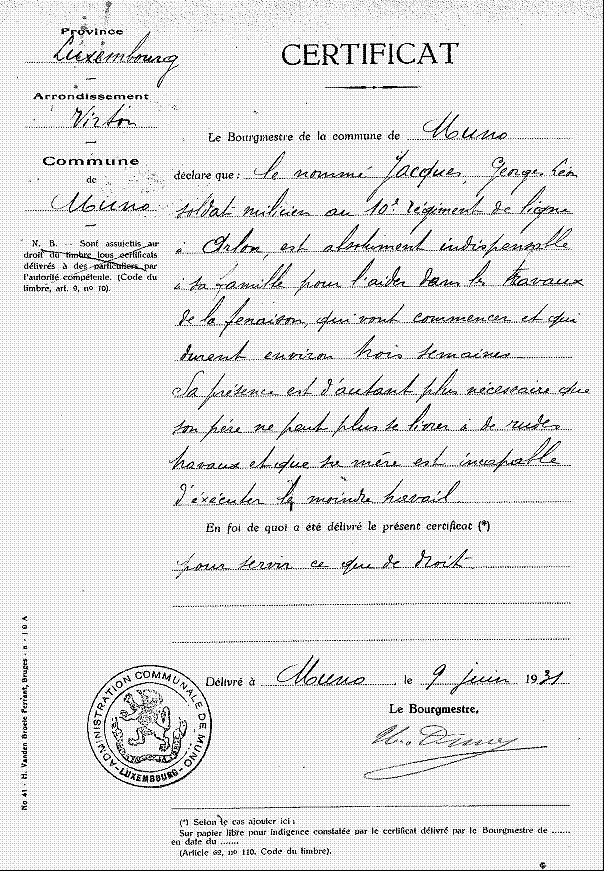 Province
Luxembourg
Arrondissement
Virton
Commune
de
Muno
N. B. — Sont assujettis au
droit du timbre tous certificats
délivrés à des particuliers par
l'autorité compétente. (Code du
timbre, art. 9, nº 10).
CERTIFICAT
Le Bourgmestre de la commune de Muno
déclare que : le nommé Jacques, Georges Léon
soldat milicien au 10e régiment de ligne
à Arlon, est absolument indispensable
à sa famille pour l'aider dans les travaux
de la fenaison, qui vont commencer et qui
durent environ trois semaines.
Sa présence est d'autant plus nécessaire que
son père ne peut plus se livrer à de rudes
travaux et que sa mère est incapable
d'exécuter le moindre travail
En foi de quoi a été délivré le présent certificat (*)
pour servir ce que de droit
Délivré à Muno, le 9 juin 1931
Le Bourgmestre,
ADMINISTRATION COMMUNALE DE MUNO
LUXEMBOURG
No 41 - H. Vanden Broele Ferlant, Bruges
(*) Selon le cas ajouter ici :
Sur papier libre pour indigence constatée par le certificat délivré par le Bourgmestre de .......
en date du .......
(Article 62, nº 110. Code du timbre).